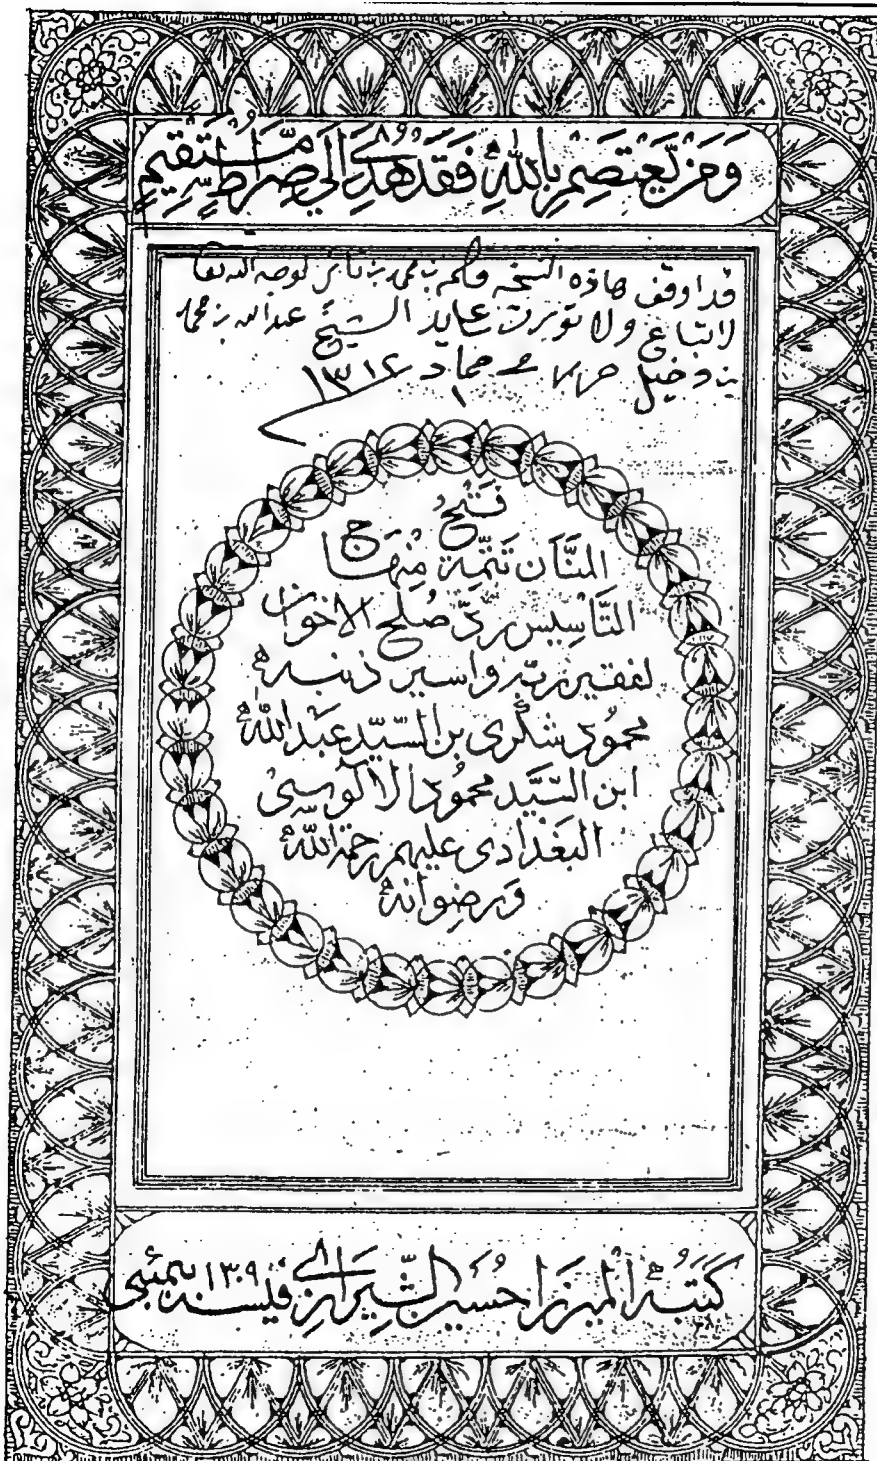 وَمَن يَّعْتَصِم بِاللّٰهِ فَقَدْ هُدِيَ اِلَى صِرَاطٍ مُّسْتَقِيمٍ
قد اوقف هاذه النسخه قاسم بن محمد بن ثاني لوجه الله تعا
لا تباع ولا تورث بيد الشيخ عبدالله بن محمد
بن دخيل حرر جماد ١٣١٢
١
فَتْحُ
المَنَّان تَتِمَّة مِنْهَاج
التَّاسِيس رَدّ صُلْح الاخوان
لفقير ربّه واسير ذنبه
محمُود شكرى بن السّيّد عَبْد اللّٰه
ابن السَّيَّد محمُود الالوسى
البَغْدَادى عليهم رحمة اللّٰه
وَرِضوانه
كَتَبَهُ الميرزا حُسَين الشِّيرَازي فيسنه ١٣٠٩ بمبئى